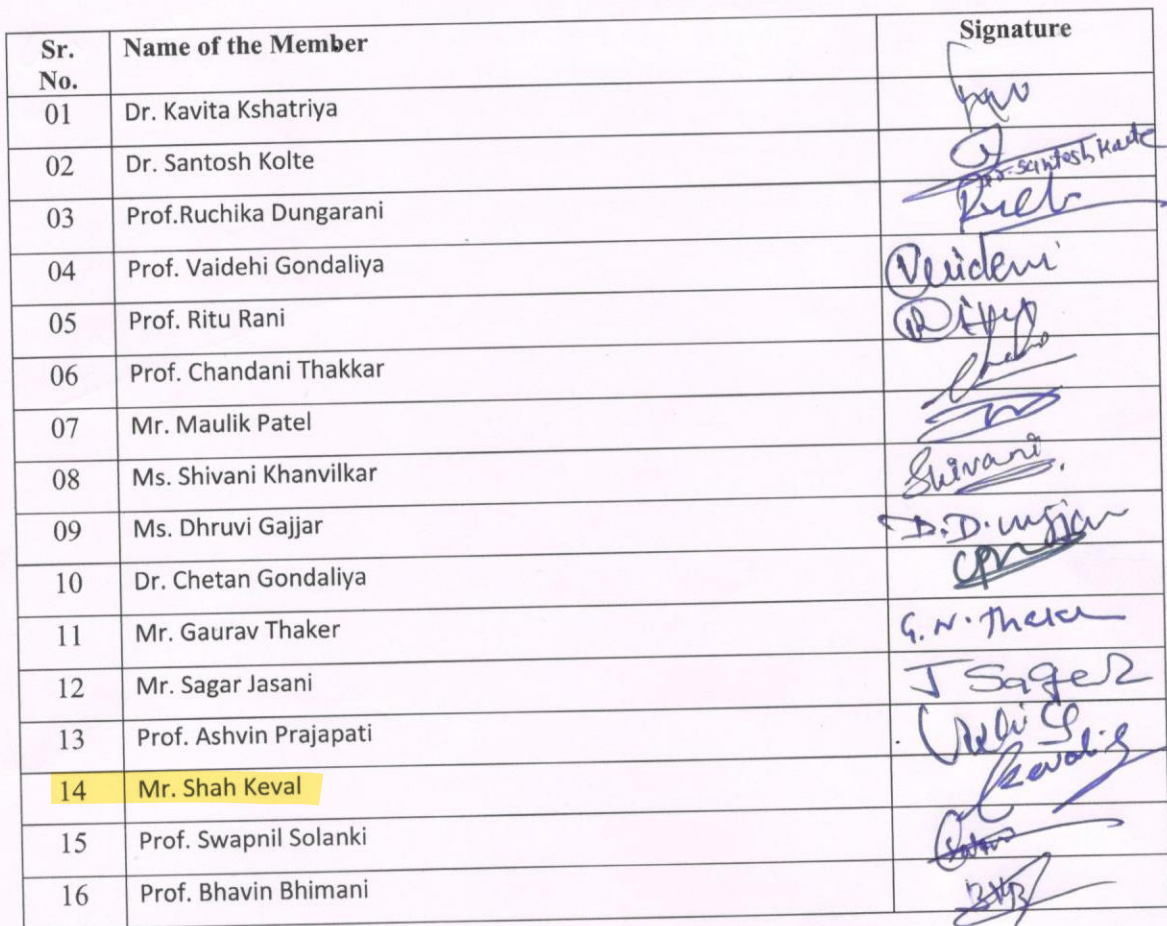 Sr. No. Name of the Member Signature
01 Dr. Kavita Kshatriya
02 Dr. Santosh Kolte Dr. Santosh Kolte
03 Prof.Ruchika Dungarani
04 Prof. Vaidehi Gondaliya
05 Prof. Ritu Rani
06 Prof. Chandani Thakkar
07 Mr. Maulik Patel
08 Ms. Shivani Khanvilkar Shivani
09 Ms. Dhruvi Gajjar
10 Dr. Chetan Gondaliya
11 Mr. Gaurav Thaker G. N. Thaker
12 Mr. Sagar Jasani J Sager
13 Prof. Ashvin Prajapati
14 Mr. Shah Keval
15 Prof. Swapnil Solanki
16 Prof. Bhavin Bhimani